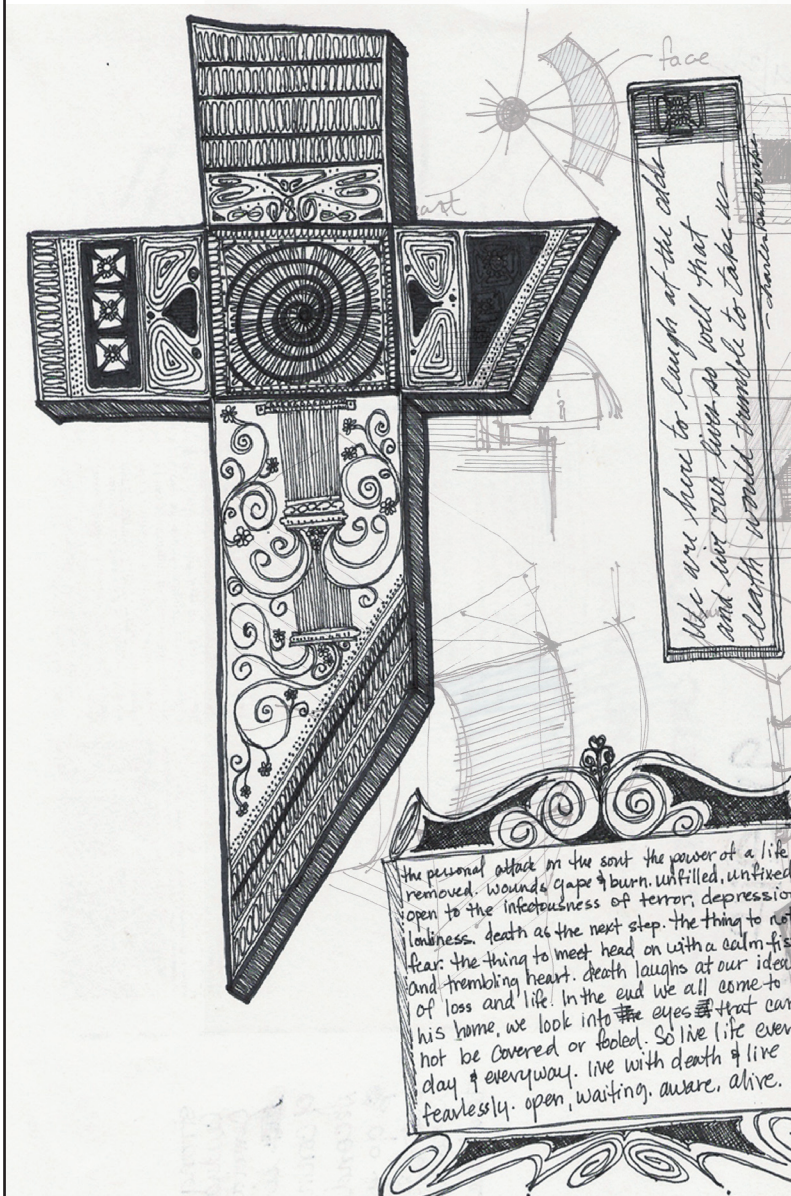 face
art
We are here to laugh at the odds
and live our lives so well that
death would tremble to take us
-charles bukowski
the personal attack on the the power of a life
removed. wounds gape & burn. unfilled, unfixed
open to the infectousness of terror, depressio
lonliness. death as the next step. the thing to not
fear. the thing to meet head on with a calm fis
and trembling heart. death laughs at our idea
of loss and life. In the end we all come to
his home, we look into the eyes that can
not be covered or fooled. So live life ever
day & everyway. live with death & live
fearlessly. open, waiting. aware, alive.